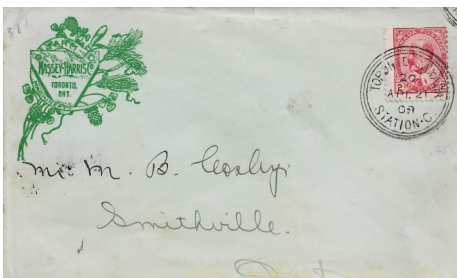 MASSEY-HARRIS Co
TORONTO,
ONT.
TORONTO, CANADA
20
APR 21
09
STATION-C.
Mr. M. B. Cosby
Smithville.